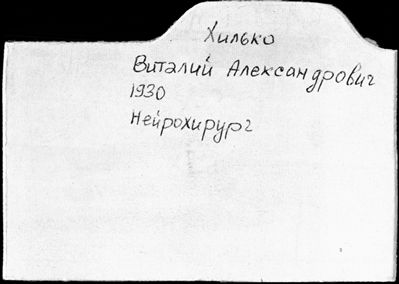 Хилько
Виталий Александрович
1930
Нейрохирург